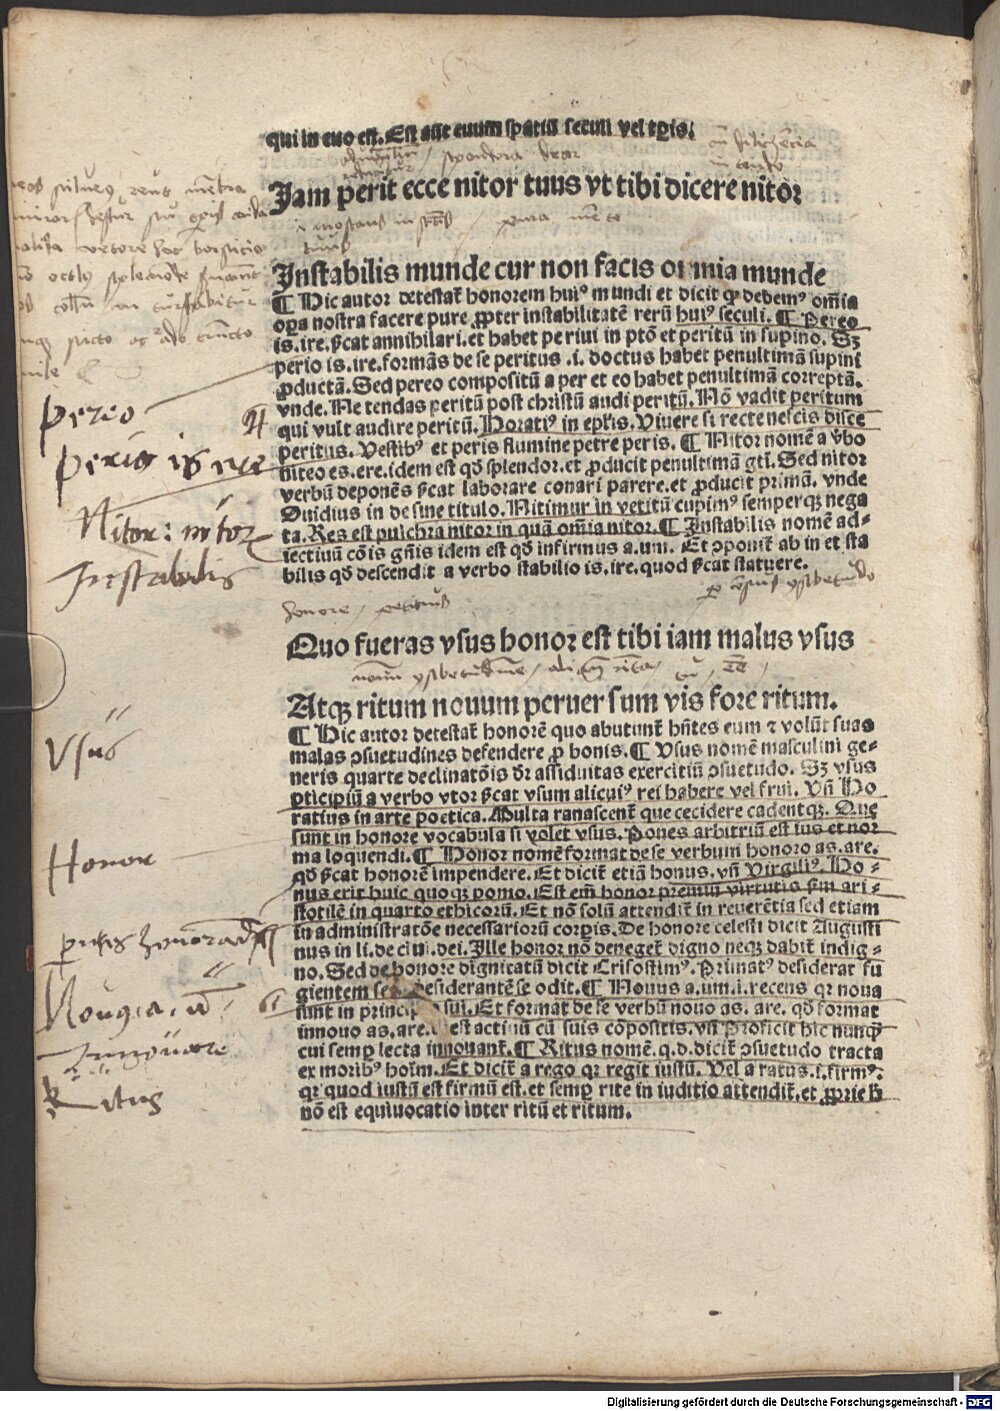 qui in euo est. Est aūt euum spatiū seculi vel tꝑis.
Jam perit ecce nitor tuus vt tibi dicere nitor
Instabilis munde cur non facis omnia munde
¶ Hic autor detestat̄ honorem huiꝰ mundi et dicit ꝙ debemꝰ om̄ia
oꝑa nostra facere pure ꝓpter instabilitatē rerū huiꝰ seculi. ¶ Pereo
is. ire. ſcat annihilari. et habet periui in ptō et peritū in supino. Sꝫ
perio is. ire. formās de se peritus .i. doctus habet penultimā supini
ꝓductā. Sed pereo compositū a per et eo habet penultimā correptā.
vnde. Ne tendas peritū post christū audi peritū. Nō vadit peritum
qui vult audire peritū. Horatiꝰ in epl̄is. Viuere si recte nescis disce
peritus. Vestibꝰ et peris flumine petre peris. ¶ Nitor nomē a v̄bo
niteo es. ere. idem est qd̄ splendor. et ꝓducit penultimā gtī. Sed nitor
verbū deponēs ſcat laborare conari parere. et ꝓducit primā. vnde
Ouidius in de sine titulo. Nitimur in vetitū cupimꝰ semperqꝫ nega
ta. Res est pulchra nitor in quā om̄ia nitor. ¶ Instabilis nomē ad=
iectiuū cōis gn̄is idem est qd̄ infirmus a. um. Et ↄponit̄ ab in et sta
bilis qd̄ descendit a verbo stabilio is. ire. quod ſcat statuere.
Quo fueras vsus honor est tibi iam malus vsus
Atqꝫ ritum nouum peruersum vis fore ritum.
¶ Hic autor detestat̄ honorē quo abutunt̄ hn̄tes eum ⁊ volūt suas
malas ↄsuetudines defendere ꝓ bonis. ¶ Vsus nomē masculini ge=
neris quarte declinatōis dr̄ assiduitas exercitiū ↄsuetudo. Sꝫ vsus
ꝑticipiū a verbo vtor ſcat vsum alicuiꝰ rei habere vel frui. Vn̄ Ho
ratius in arte poetica. Multa ranascent̄ que cecidere cadentqꝫ. Que
sunt in honore vocabula si volet vsus. Penes arbitriū est ius et nor
ma loquendi. ¶ Honor nomē format de se verbum honoro as. are.
qd̄ ſcat honorē impendere. Et dicit̄ etiā honus. vn̄ Virgiliꝰ. Ho=
nus erit huic quoqꝫ pomo. Est em̄ honor premiū virtutis ſm ari=
stotilē in quarto ethicorū. Et nō solū attendit̄ in reuerētia sed etiam
in administratōe necessariorū corꝑis. De honore celesti dicit Augusti
nus in li. de ciui. dei. Ille honor nō deneget̄ digno neqꝫ dabit̄ indig=
no. Sed de honore dignitatū dicit Crisostimꝰ. Primatꝰ desiderat fu
gientem se desiderantē se odit. ¶ Nouus a. um. i. recens qr noua
sunt in princip sui. Et format de se verbū nouo as. are. qd̄ format
innouo as. are. est actiuū cū suis cōpositis. vn̄ Proficit hic nunqꝫ
cui semꝑ lecta innouant̄. ¶ Ritus nomē. q. d. dicit̄ ↄsuetudo tracta
ex moribꝰ hoīm. Et dicit̄ a rego qr regit iustū. Vel a ratus .i. firmꝰ.
qr quod iustū est firmū est. et semꝑ rite in iuditio attendit̄. et ꝓprie h̄
nō est equiuocatio inter ritū et ritum.
Pereo
Perio is ire
Nitor: nitor
Instabilis
Vsus
Honor
Nouus a. ū
Innouare
Ritus
Digitalisierung gefördert durch die Deutsche Forschungsgemeinschaft - DFG